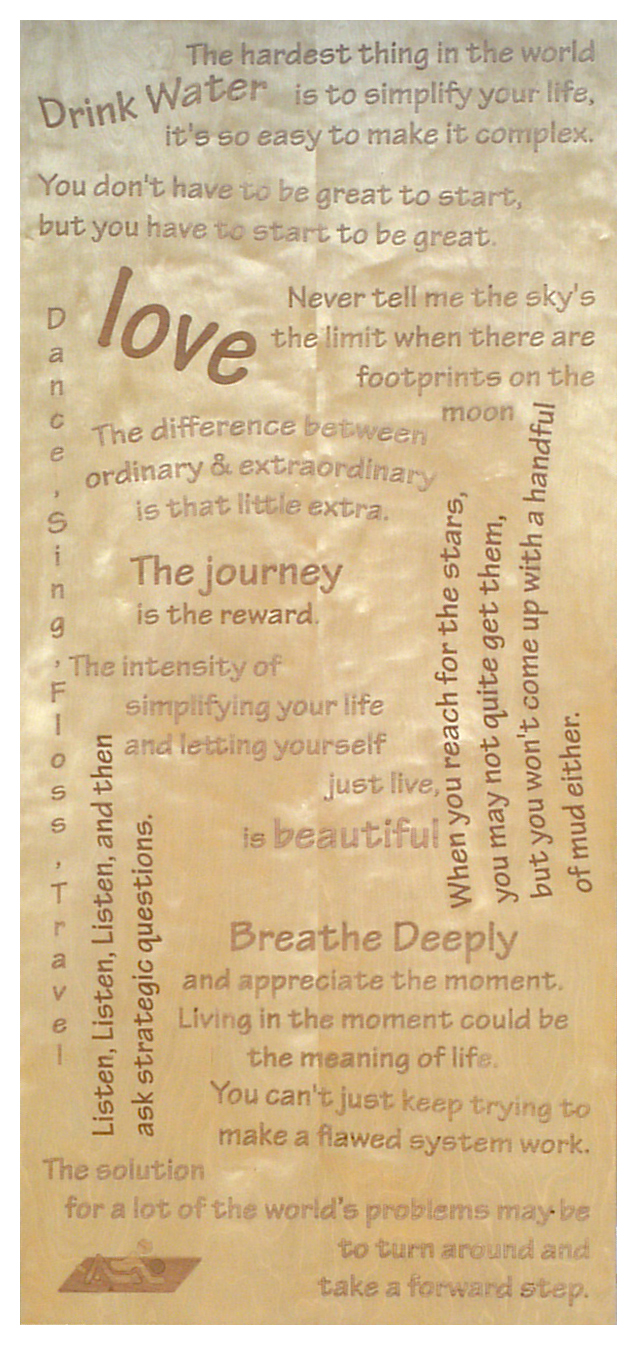 The hardest thing in the world
Drink Water
is to simplify your life,
it's so easy to make it complex.
You don't have to be great to start,
but you have to start to be great.
love
Never tell me the sky's
the limit when there are
footprints on the
moon
Dance, Sing, Floss, Travel
The difference between
ordinary & extraordinary
is that little extra.
When you reach for the stars,
you may not quite get them,
but you won't come up with a handful
of mud either.
The journey
is the reward.
The intensity of
simplifying your life
and letting yourself
just live,
is beautiful
Listen, Listen, Listen, and then
ask strategic questions.
Breathe Deeply
and appreciate the moment.
Living in the moment could be
the meaning of life.
You can't just keep trying to
make a flawed system work.
The solution
for a lot of the world's problems may be
to turn around and
take a forward step.